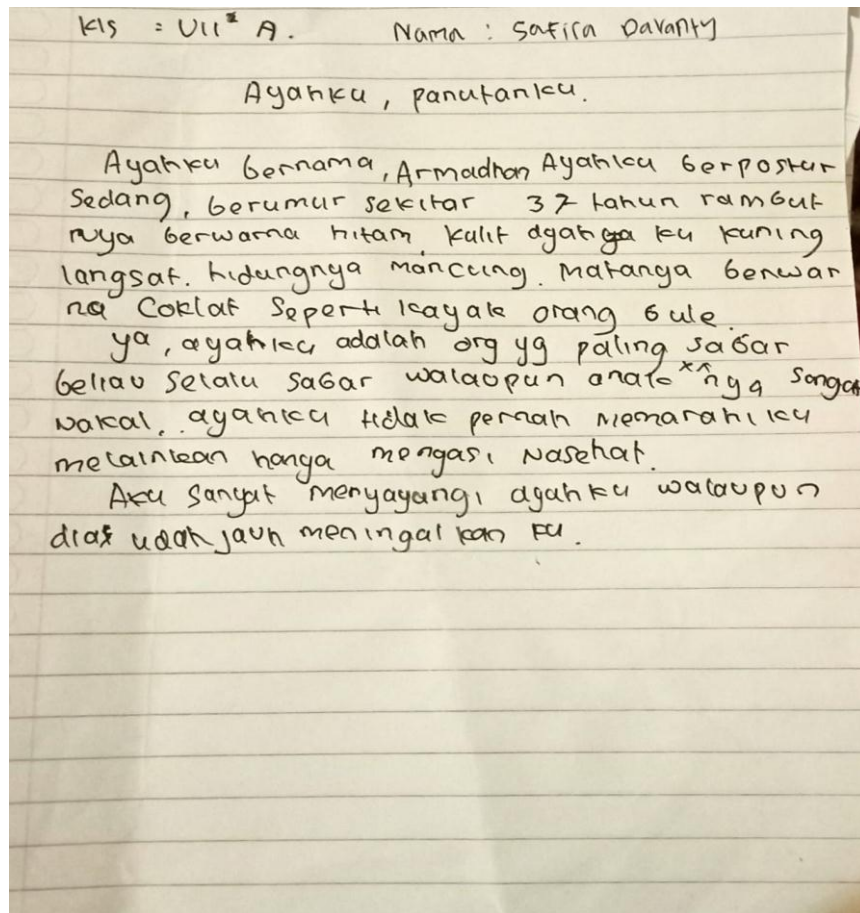 Kls = VII A. Nama : Safira Davanty
Ayahku, panutanku.
Ayahku bernama, Armadhan Ayahku berpostur
Sedang, berumur sekitar 37 tahun rambut
nya berwarna hitam. kulit ayahnya ku kuning
langsat. hidungnya mancung. Matanya berwar
na Coklat Seperti kayak orang bule.
ya, ayahku adalah org yg paling sabar
beliau Selalu Sabar walaupun anak nya Sangat
Nakal. ayahku tidak pernah Memarahi ku
melainkan hanya mengasi Nasehat.
Aku Sangat menyayangi ayahku walaupun
dias udah jauh meningal kan ku.